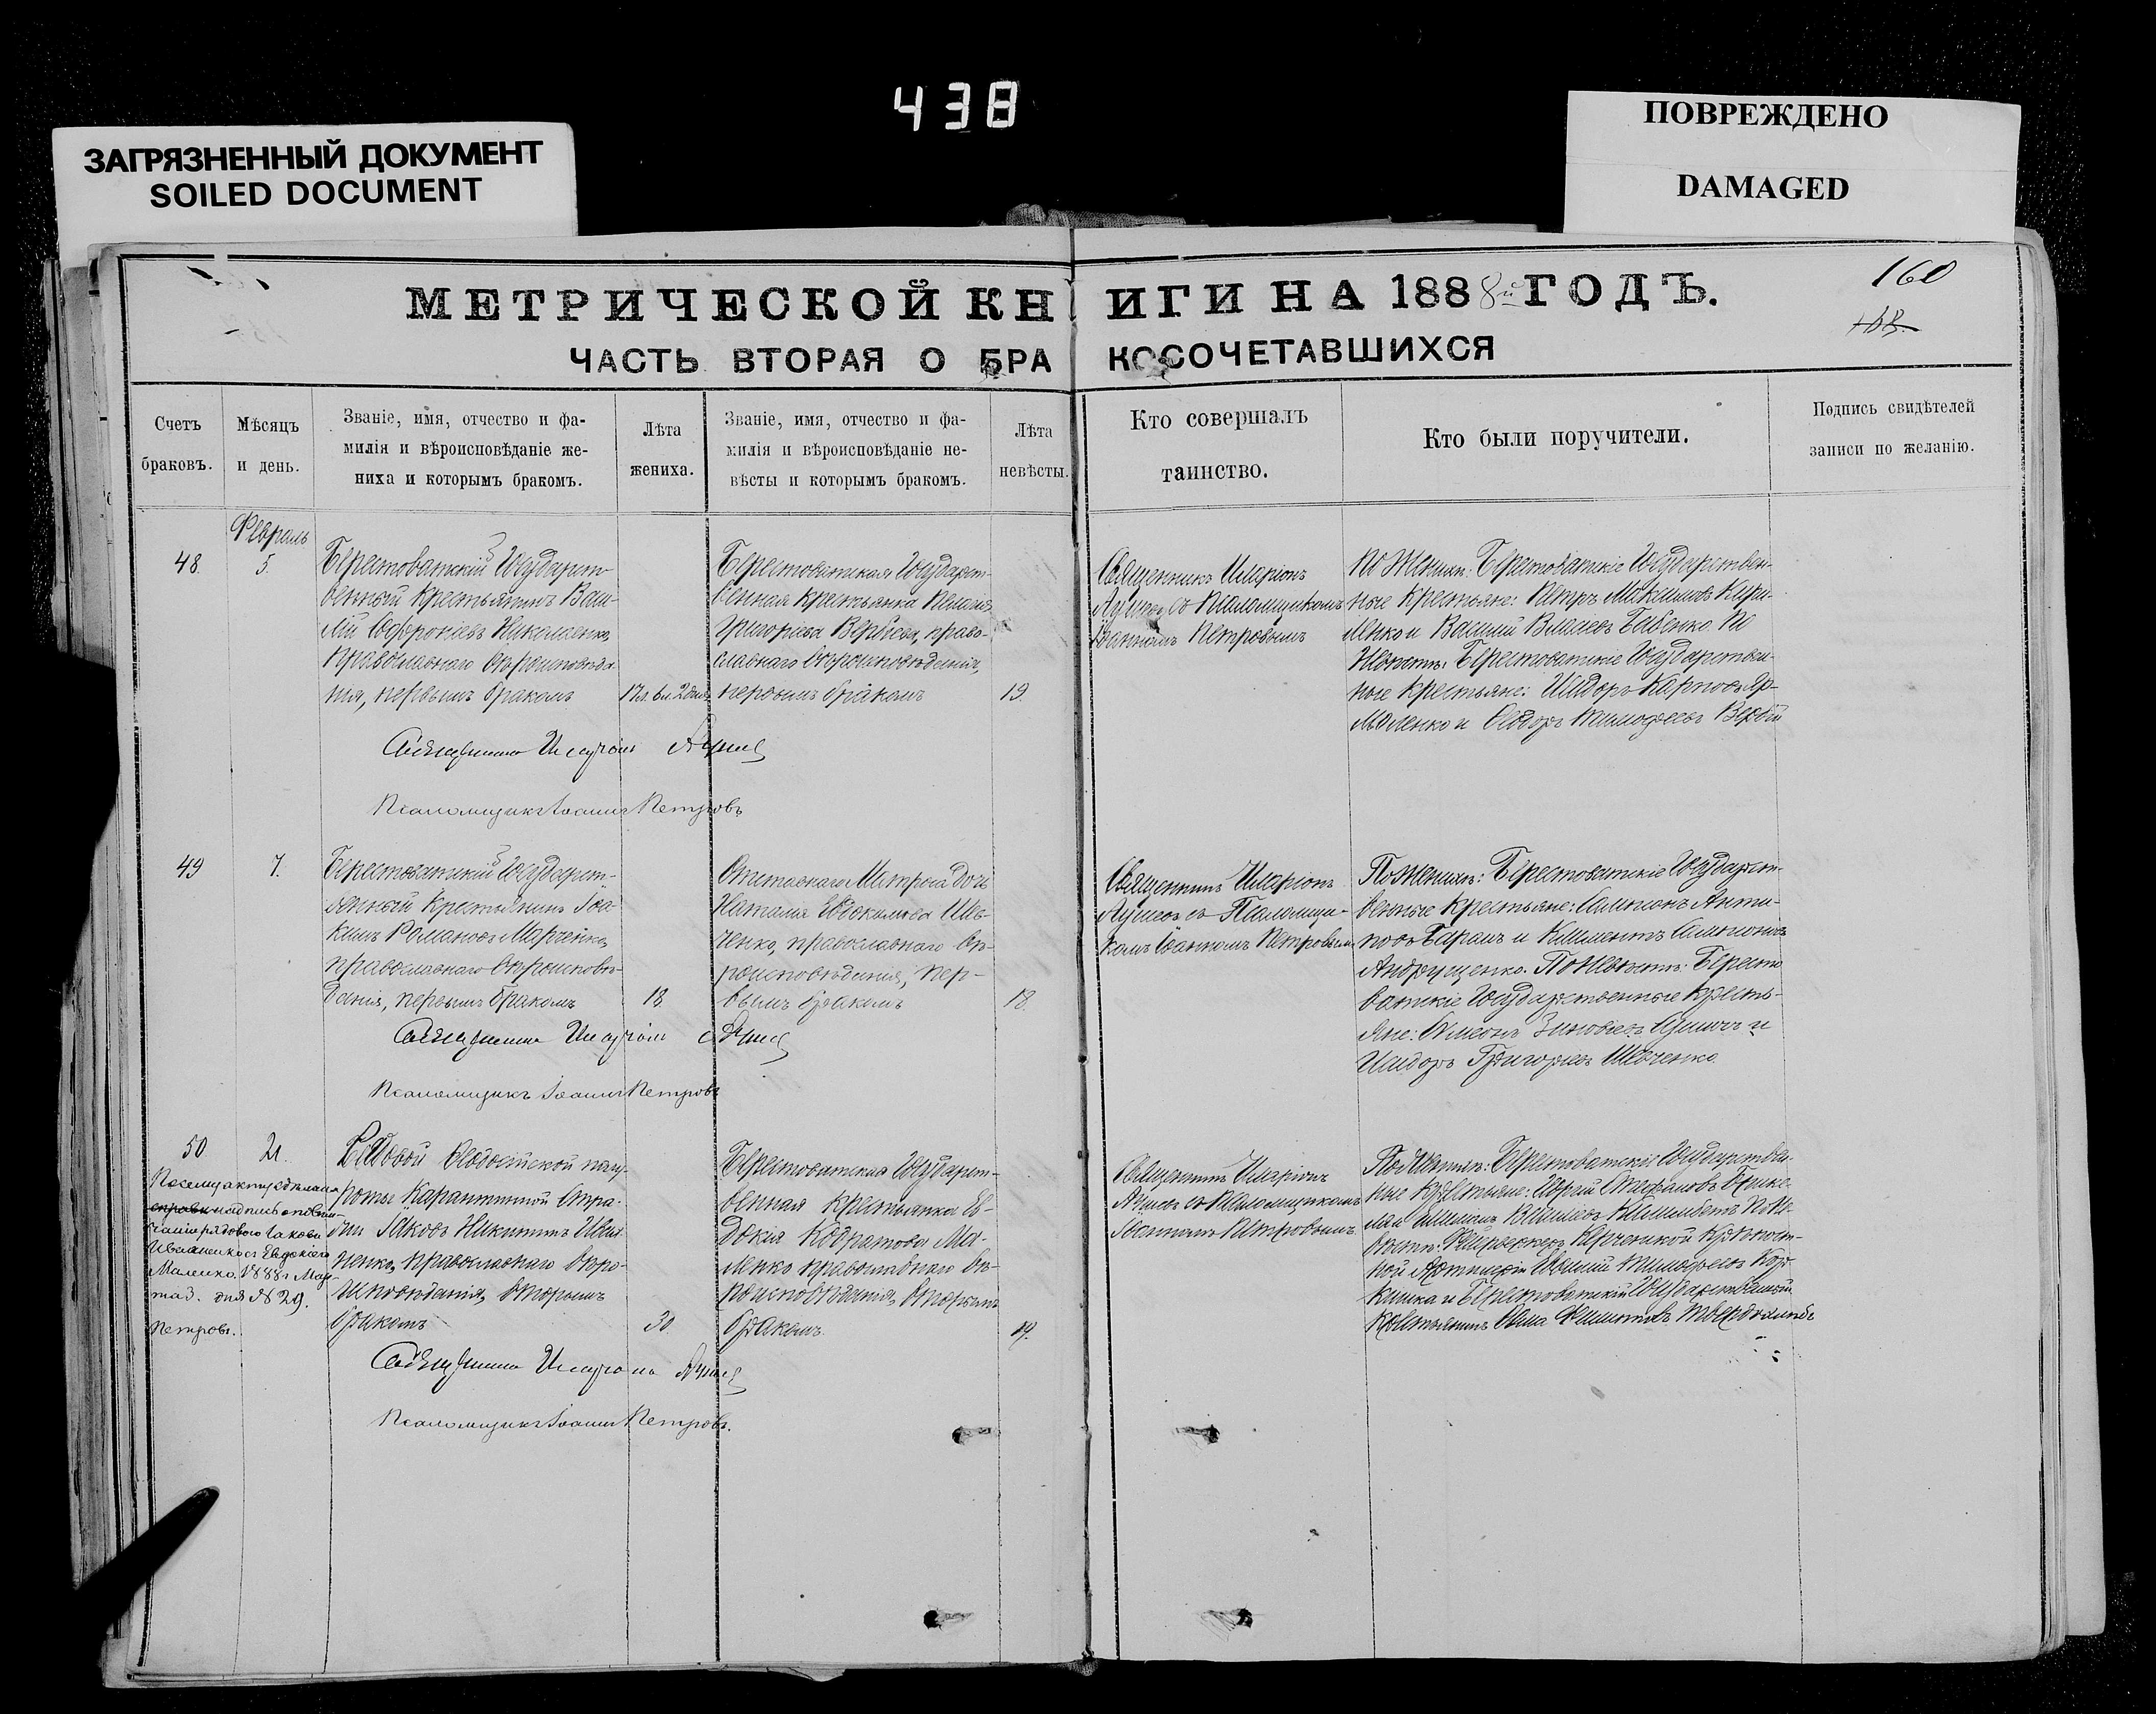 438
ЗАГРЯЗНЕННЫЙ ДОКУМЕНТ
SOILED DOCUMENT
ПОВРЕЖДЕНО
DAMAGED
МЕТРИЧЕСКОЙ КНИГИ НА 1888й ГОДЪ.
160
ЧАСТЬ ВТОРАЯ О БРАКОСОЧЕТАВШИХСЯ
Счетъ
браковъ.
Мѣсяцъ
и день.
Званіе, имя, отчество и фа-
милія и вѣроисповѣданіе же-
ниха и которымъ бракомъ.
Лѣта
жениха.
Званіе, имя, отчество и фа-
милія и вѣроисповѣданіе не-
вѣсты и которымъ бракомъ.
Лѣта
невѣсты.
Кто совершалъ
таинство.
Кто были поручители.
Подпись свидѣтелей
записи по желанію.
48.
Февраль
5.
Берестоватскій Государст-
венный крестьянинъ Васи-
лій Софроніевъ Николаенко,
православнаго вѣроисповѣда
нія, первымъ бракомъ
17 л. 6 м. 2 дня
Берестоватская Государст-
венная крестьянка Пелагія
Григорьева Вербіева, право-
славнаго вѣроисповѣданія,
первымъ бракомъ
19.
Священникъ Иларіонъ
съ Псаломщикомъ
Іоанномъ Петровымъ
По Женихѣ: Берестоватскіе Государствен-
ные крестьяне: Петръ Максимовъ Кири-
ленко и Василій Бабенко. По
Невѣстѣ: Берестоватскіе Государствен-
ные крестьяне: Исидоръ Карповъ Яр-
моленко и Ѳедоръ Тимофеевъ Вербій
Священникъ Иларіонъ
Псаломщикъ Іоаннъ Петровъ
49
7.
Берестоватскій Государст-
венный крестьянинъ Іоа-
кимъ Романовъ Марченко,
православнаго вѣроисповѣ-
данія, первымъ бракомъ
18
Отставнаго Матроса дочь
Наталія Евдокимова Шев-
ченко, православнаго вѣ-
роисповѣданія, пер-
вымъ бракомъ
18.
Священникъ Иларіонъ
съ Псаломщи-
комъ Іоанномъ Петровымъ
По Женихѣ: Берестоватскіе Государст-
венные крестьяне: Симеонъ Анти-
повъ Баранъ и Климентъ
Андрущенко. По Невѣстѣ: Бересто
ватскіе Государственные кресть-
яне: Симеонъ Зиновіевъ и
Исидоръ Григорьевъ Шевченко
Священникъ Иларіонъ
Псаломщикъ Іоаннъ Петровъ
50
21.
Рядовой Ѳеодосійской полу-
ротье Карантинной Стра-
жи Іаковъ Никитинъ Ива-
ненко, православнаго вѣро-
исповѣданія, вторымъ
бракомъ
30
Берестоватская Государст-
венная крестьянка Ев-
докія Кодратова Ма-
ленко православнаго вѣ-
роисповѣданія, вторымъ
бракомъ
19.
Священникъ Иларіонъ
съ Псаломщикомъ
Іоанномъ Петровымъ
По Женихѣ: Берестоватскіе Государствен-
ные крестьяне: Стефановъ
По Не-
вѣстѣ: Фейерверкеръ Керченской Крѣпост-
ной Артиллеріи Тимофеевъ
и Берестоватскій Государственный
крестьянинъ
По сему акту
надпись о повѣн-
чаніи рядового Іакова
Иваненко съ Евдокіею
Маленко. 1888 г. Мар-
та 3. дня № 29.
Петровъ.
Священникъ Иларіонъ
Псаломщикъ Іоаннъ Петровъ.